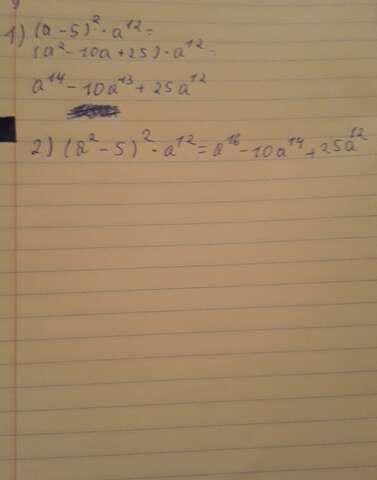 1) (a - 5)² · a¹² =
(a² - 10a + 25) · a¹² =
a¹⁴ - 10a¹³ + 25a¹²
2) (a² - 5)² · a¹² = a¹⁶ - 10a¹⁴ + 25a¹²